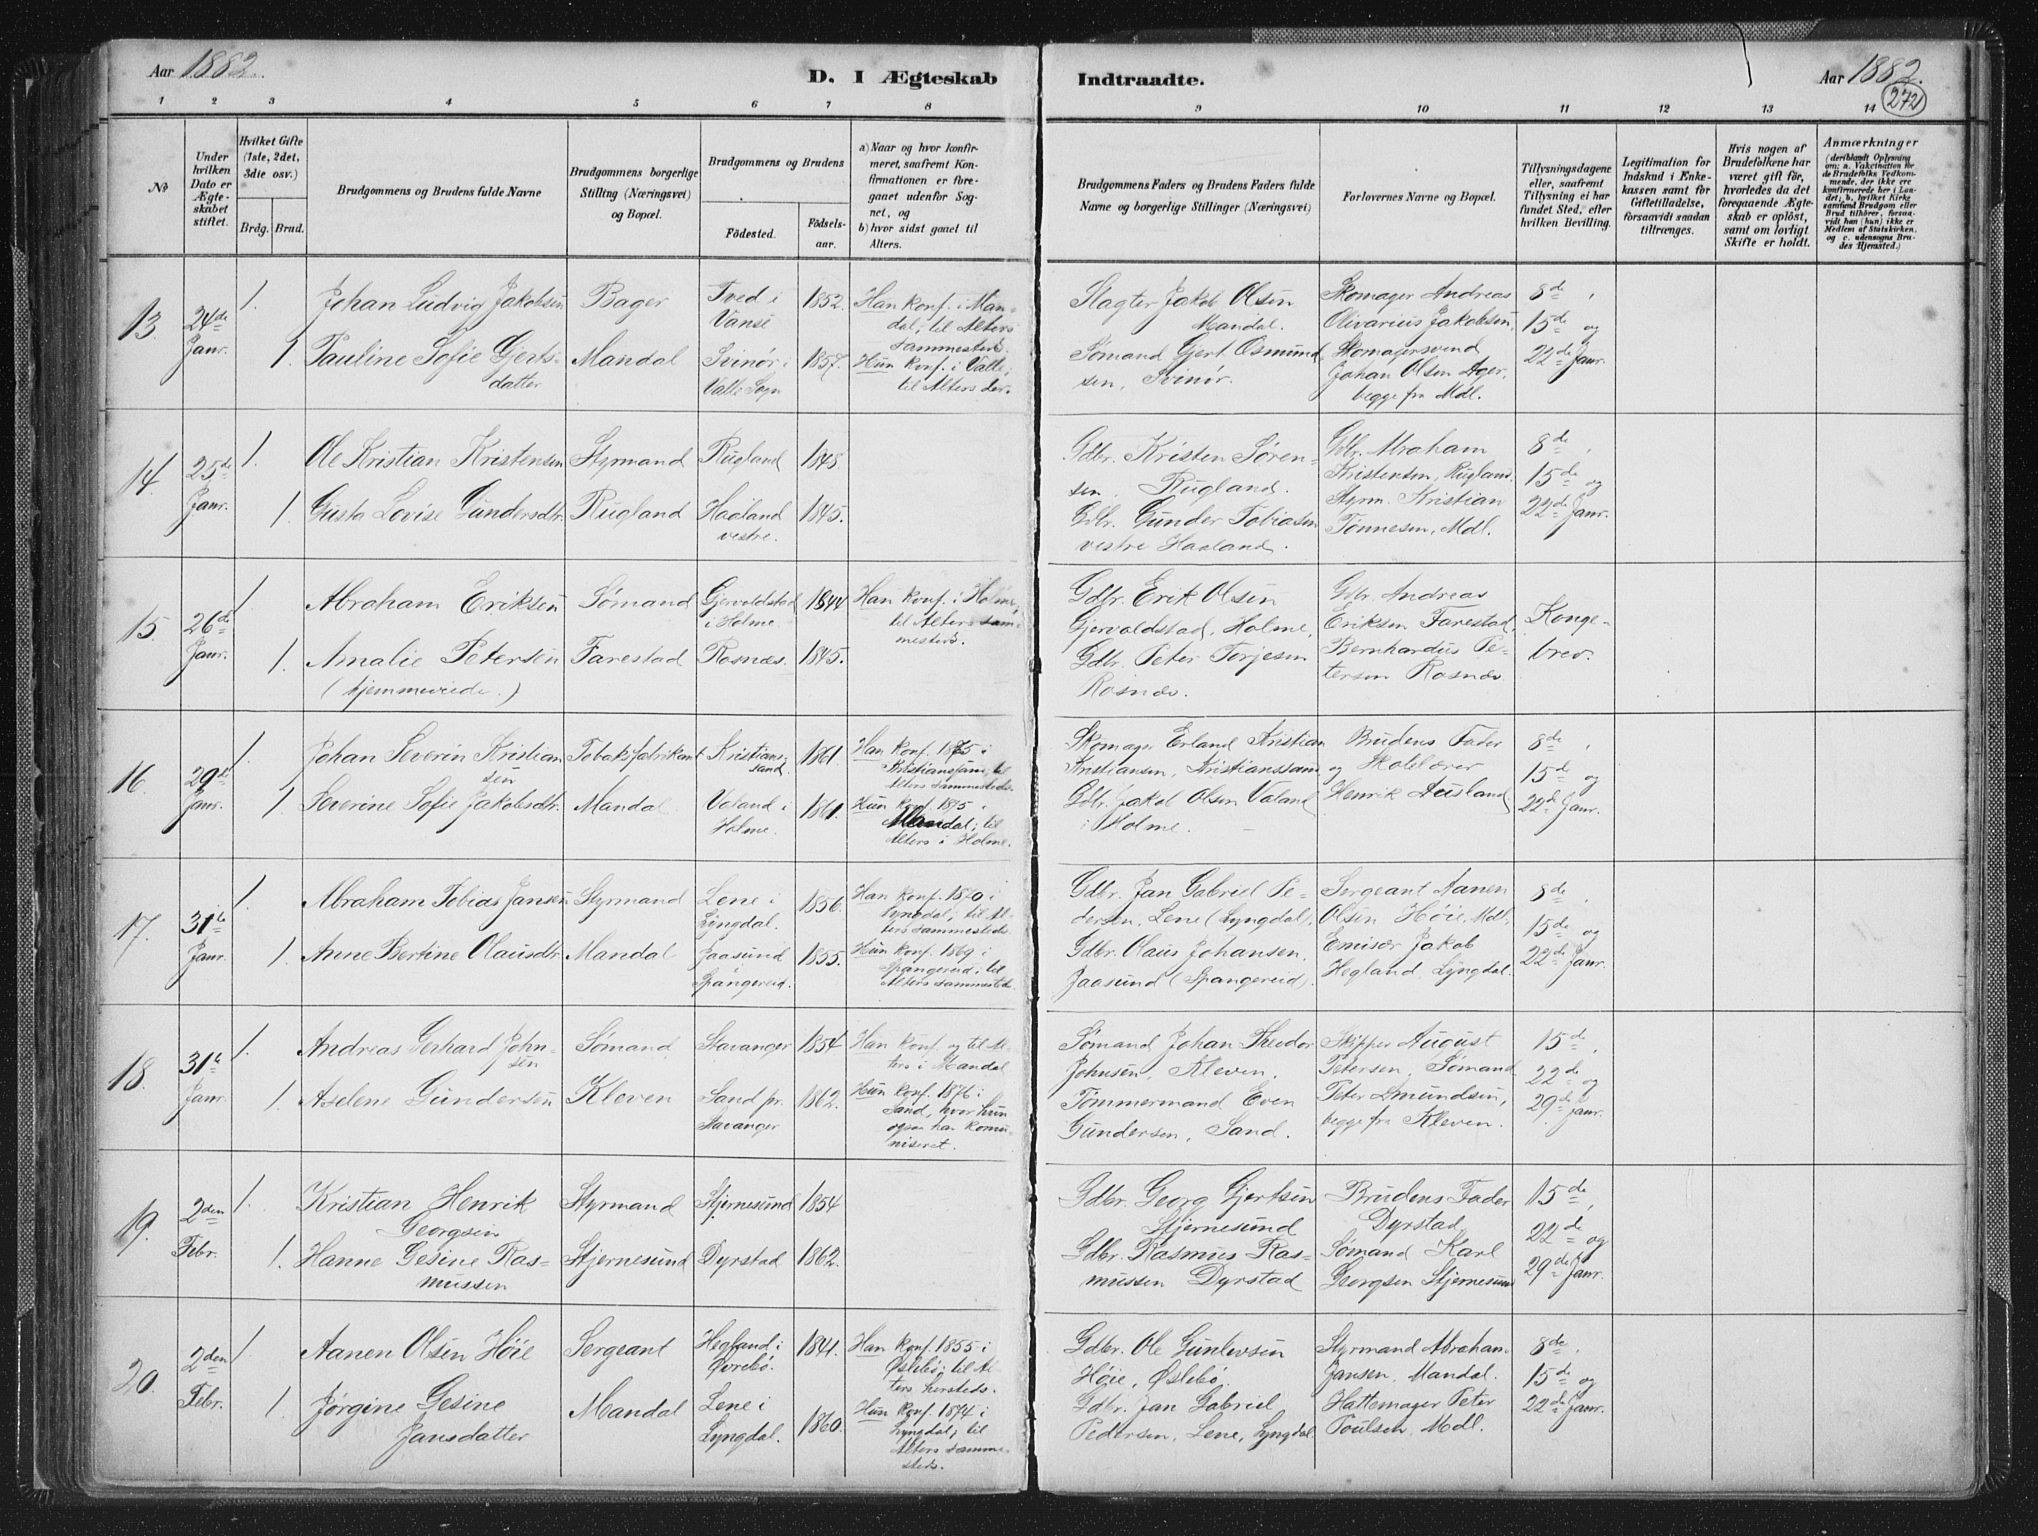 Aar 1882.
D. I Ægteskab
Indtraadte.
Aar 1882.
272
1 2 3 4 5 6 7 8 9 10 11 12 13 14
No
Under hvilken Dato er Ægteskabet stiftet.
Hvilket Gifte (1ste, 2det, 3die osv.)
Brdg. Brud.
Brudgommens og Brudens fulde Navne
Brudgommens borgerlige Stilling (Næringsvei) og Bopæl.
Brudgommens og Brudens
Födested.
Födsels-aar.
a) Naar og hvor konfirmeret, saafremt Konfirmationen er foregaaet udenfor Sognet, og
b) hvor sidst gaaet til Alters.
Brudgommens Faders og Brudens Faders fulde Navne og borgerlige Stillinger (Næringsvei)
Forlovernes Navne og Bopæl.
Tillysningsdagene eller, saafremt Tillysning ei har fundet Sted, efter hvilken Bevilling.
Legitimation for Indskud i Enkekassen samt for Giftetilladelse, forsaavidt saadan tiltrænges.
Hvis nogen af Brudefolkene har været gift før, hvorledes da det foregaaende Ægteskab er oplöst, samt om lovligt Skifte er holdt.
Anmærkninger
(deriblandt Oplysning om: a. Vakcination for de Brudefolks Vedkommende, der ikke ere konfirmerede her i Landet; b. hvilket Kirkesamfund Brudgom eller Brud tilhörer, forsaavidt han (hun) ikke er Medlem af Statskirken, og c. udensogns Brudes Hjemsted.)
13. 24de Janr.
1. Johan Ludvig Jakobsen
Bager
Tved i Vanse
1852.
Han konf. i Mandal, til Alters sammesteds.
Slagter Jakob Olsen Mandal.
Skomager Andreas Olivarius Jakobsen,
8de, 15de og 22de Janr.
1. Pauline Sofie Gjertsdatter
Mandal
Svinør i Valle Sogn
1857.
Hun konf. i Valle, til Alters der.
Sømand Gjert Osmundsen, Svinør.
Skomagersvend Johan Olsen Ager, begge fra Mdl.
14. 25de Janr.
1. Ole Kristian Kristensen
Styrmand
Rugland
1848
Gdbr. Kristen Sørensen. Rugland.
Gdbr. Abraham Kristensen, Rugland
8de, 15de og 22de Janr.
1. Gusta Lovise Gundersdtr.
Rugland
Haaland vestre.
1845.
Gdbr. Gunder Tobiasen vestre Haaland.
Styrm. Kristian Tønnesen, Mdl.
15. 26de Janr.
1 Abraham Eriksen
Sømand
Gjervoldstad i Holme
1844
Han konf. i Holme, til Alters sammesteds.
Gdbr. Erik Olsen Gjervoldstad, Holme,
Gdbr. Andreas Eriksen Farestad,
Kongebrev.
1. Amalie Petersen (hjemmeviede.)
Farestad
Rosnæs.
1845.
Gdbr. Peter Terjesen Rosnæs.
Bernhardus Petersen Rosnæs
16. 29de Janr.
1. Johan Severin Kristiansen
Tobaksfabrikant
Kristianssand.
1861.
Han konf. 1875 i Kristianssand, til Alters sammesteds.
Skomager Erland Kristian Kristiansen, Kristianssand
Brudens Fader og Skolelærer Henrik Ausland
8de, 15de og 22de Janr.
1. Severine Sofie Jakobsdtr.
Mandal
Valand i Holme.
1861.
Hun konf. 1875 i Mandal; til Alters i Holme.
Gdbr. Jakob Olsen Valand i Holme.
17. 31te Janr.
1. Abraham Tobias Jansen
Styrmand
Lene i Lyngdal.
1856.
Han konf. 1870 i Lyngdal; til Alters sammesteds.
Gdbr. Jan Gabriel Pedersen, Lene (Lyngdal),
Sergeant Aanen Olsen Høie, Mdl,
8de, 15de og 22de Janr.
1. Anne Bertine Olausdtr.
Mandal
Jaasund Spangereid.
1855.
Hun konf. 1869 i Spangereid; til Alters sammesteds
Gdbr. Olaus Johansen, Jaasund (Spangereid).
Emisær Jakob Hegland, Lyngdal.
18. 31te Janr.
1. Andreas Gerhard Johnsen
Sømand
Stavanger
1854
Han konf. og til Alters i Mandal
Sømand Johan Theodor Johnsen, Kleven.
Skipper August Petersen, Sømand
15de, 22de og 29de Janr.
1. Aselene Gundersen
Kleven
Sand pr. Stavanger
1862.
Hun konf. 1876 i Sand, hvor hun ogsaa har komuniseret.
Tømmermand Even Gundersen, Sand.
Peter Amundsen, begge fra Kleven.
19. 2den Febr.
1. Kristian Henrik Georgsen
Styrmand
Stjernesund
1854
Gdbr. Georg Gjertsen Stjernesund
Brudens Fader Dyrstad
15de, 22de og 29de Janr.
1. Hanne Gesine Rasmussen
Stjernesund
Dyrstad
1862.
Gdbr. Rasmus Rasmussen Dyrstad
Sømand Karl Georgsen Stjernesund
20. 2den Febr.
1. Aanen Olsen Høie
Sergeant
Hegland i Øvrebø.
1841.
Han konf. 1855 i Øslebø; til Alters hersteds.
Gdbr. Ole Gunlevsen Høie, Øslebø.
Styrmand Abraham Jansen, Mandal.
8de, 15de og 22de Janr.
1. Jørgine Gesine Jansdatter
Mandal
Lene i Lyngdal.
1860.
Hun konf. 1874 i Lyngdal; til Alters sammesteds.
Gdbr. Jan Gabriel Pedersen, Lene, Lyngdal.
Hattemager Peter Poulsen, Mdl.